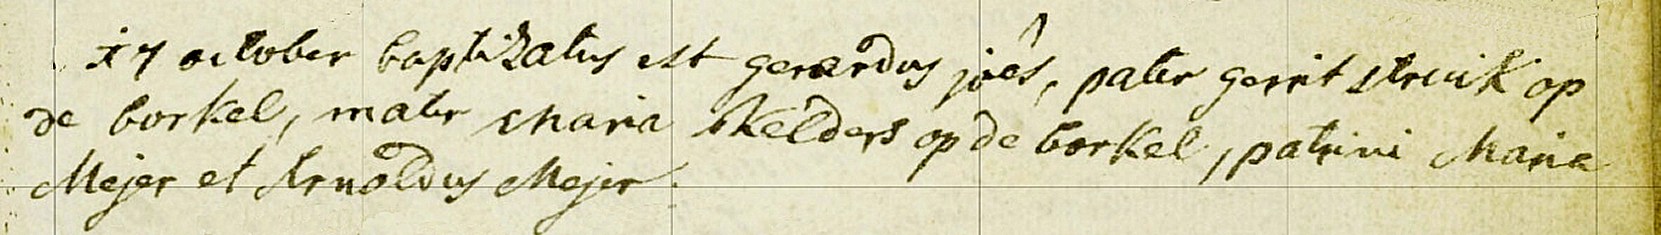 17 october baptizatus est gerardus joês, pater gerrit struik op
de borkel, mater Maria Kelders op de borkel, patrini Maria
Mejer et Arnoldus Mejer.